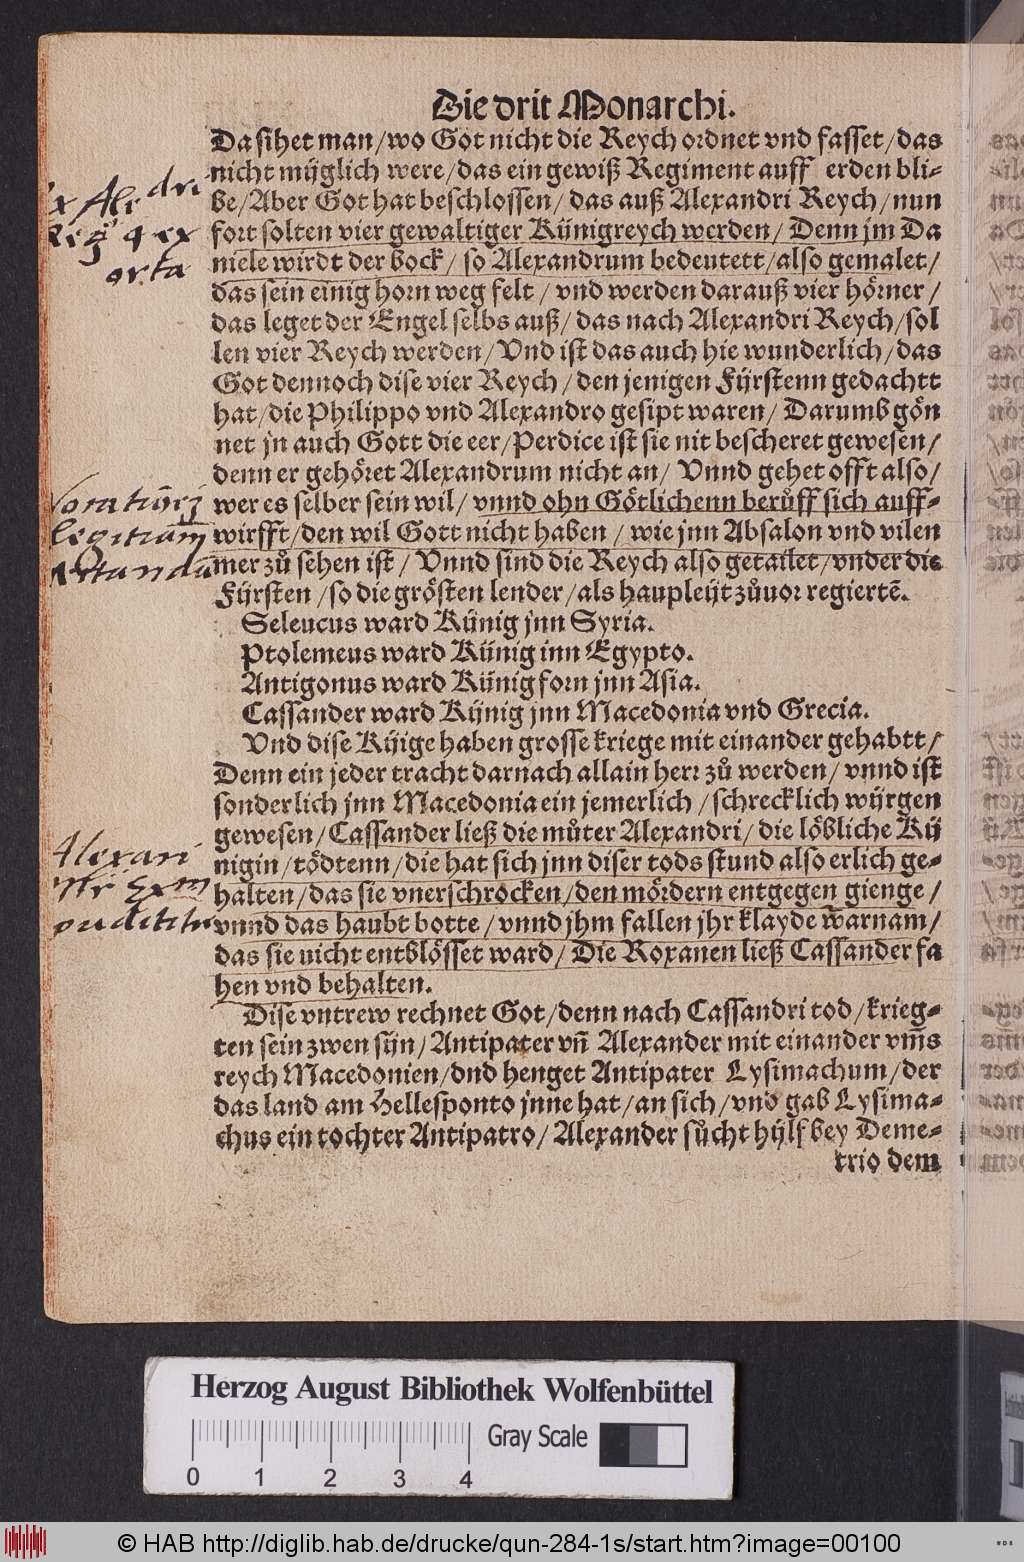 Die drit Monarchi.
Da sihet man/wo Got nicht die Reych ordnet vnd fasset/das
nicht müglich were/das ein gewiß Regiment auff erden bli-
be/Aber Got hat beschlossen/das auß Alexandri Reych/nun
fort solten vier gewaltiger Künigreych werden/Denn jm Da
niele wirdt der bock/so Alexandrum bedeutett/also gemalet/
das sein einig horn weg felt/vnd werden darauß vier hörner/
das leget der Engel selbs auß/das nach Alexandri Reych/sol
len vier Reych werden/Vnd ist das auch hie wunderlich/das
Got dennoch dise vier Reych/den jenigen Fürstenn gedachtt
hat/die Philippo vnd Alexandro gesipt waren/Darumb gön
net jn auch Gott die eer/Perdice ist sie nit bescheret gewesen/
denn er gehöret Alexandrum nicht an/Vnnd gehet offt also/
wer es selber sein wil/vnnd ohn Götlichenn berůff sich auff-
wirfft/den wil Gott nicht haben/wie jnn Absalon vnd vilen
mer zů sehen ist/Vnnd sind die Reych also getailet/vnder die
Fürsten/so die grösten lender/als haupleüt zůuor regiertē.
Seleucus ward Künig jnn Syria.
Ptolemeus ward Künig inn Egypto.
Antigonus ward Künig forn jnn Asia.
Cassander ward Künig jnn Macedonia vnd Grecia.
Vnd dise Küige haben grosse kriege mit einander gehabtt/
Denn ein jeder tracht darnach allain herr zů werden/vnnd ist
sonderlich jnn Macedonia ein jemerlich/schrecklich würgen
gewesen/Cassander ließ die můter Alexandri/die löbliche Kü
nigin/tödtenn/die hat sich jnn diser tods stund also erlich ge-
halten/das sie vnerschrocken/den mördern entgegen gienge/
vnnd das haubt botte/vnnd jhm fallen jhr klayde warnam/
das sie uicht entblösset ward/Die Roxanen ließ Cassander fa
hen vnd behalten.
Dise vntrew rechnet Got/denn nach Cassandri tod/krieg-
ten sein zwen sün/Antipater vñ Alexander mit einander vm̃s
reych Macedonien/vnd henget Antipater Lysimachum/der
das land am Hellesponto jnne hat/an sich/vnd gab Lysima-
chus ein tochter Antipatro/Alexander sůcht hülf bey Deme-
trio dem
Herzog August Bibliothek Wolfenbüttel
Gray Scale
0 1 2 3 4
© HAB http://diglib.hab.de/drucke/qun-284-1s/start.htm?image=00100